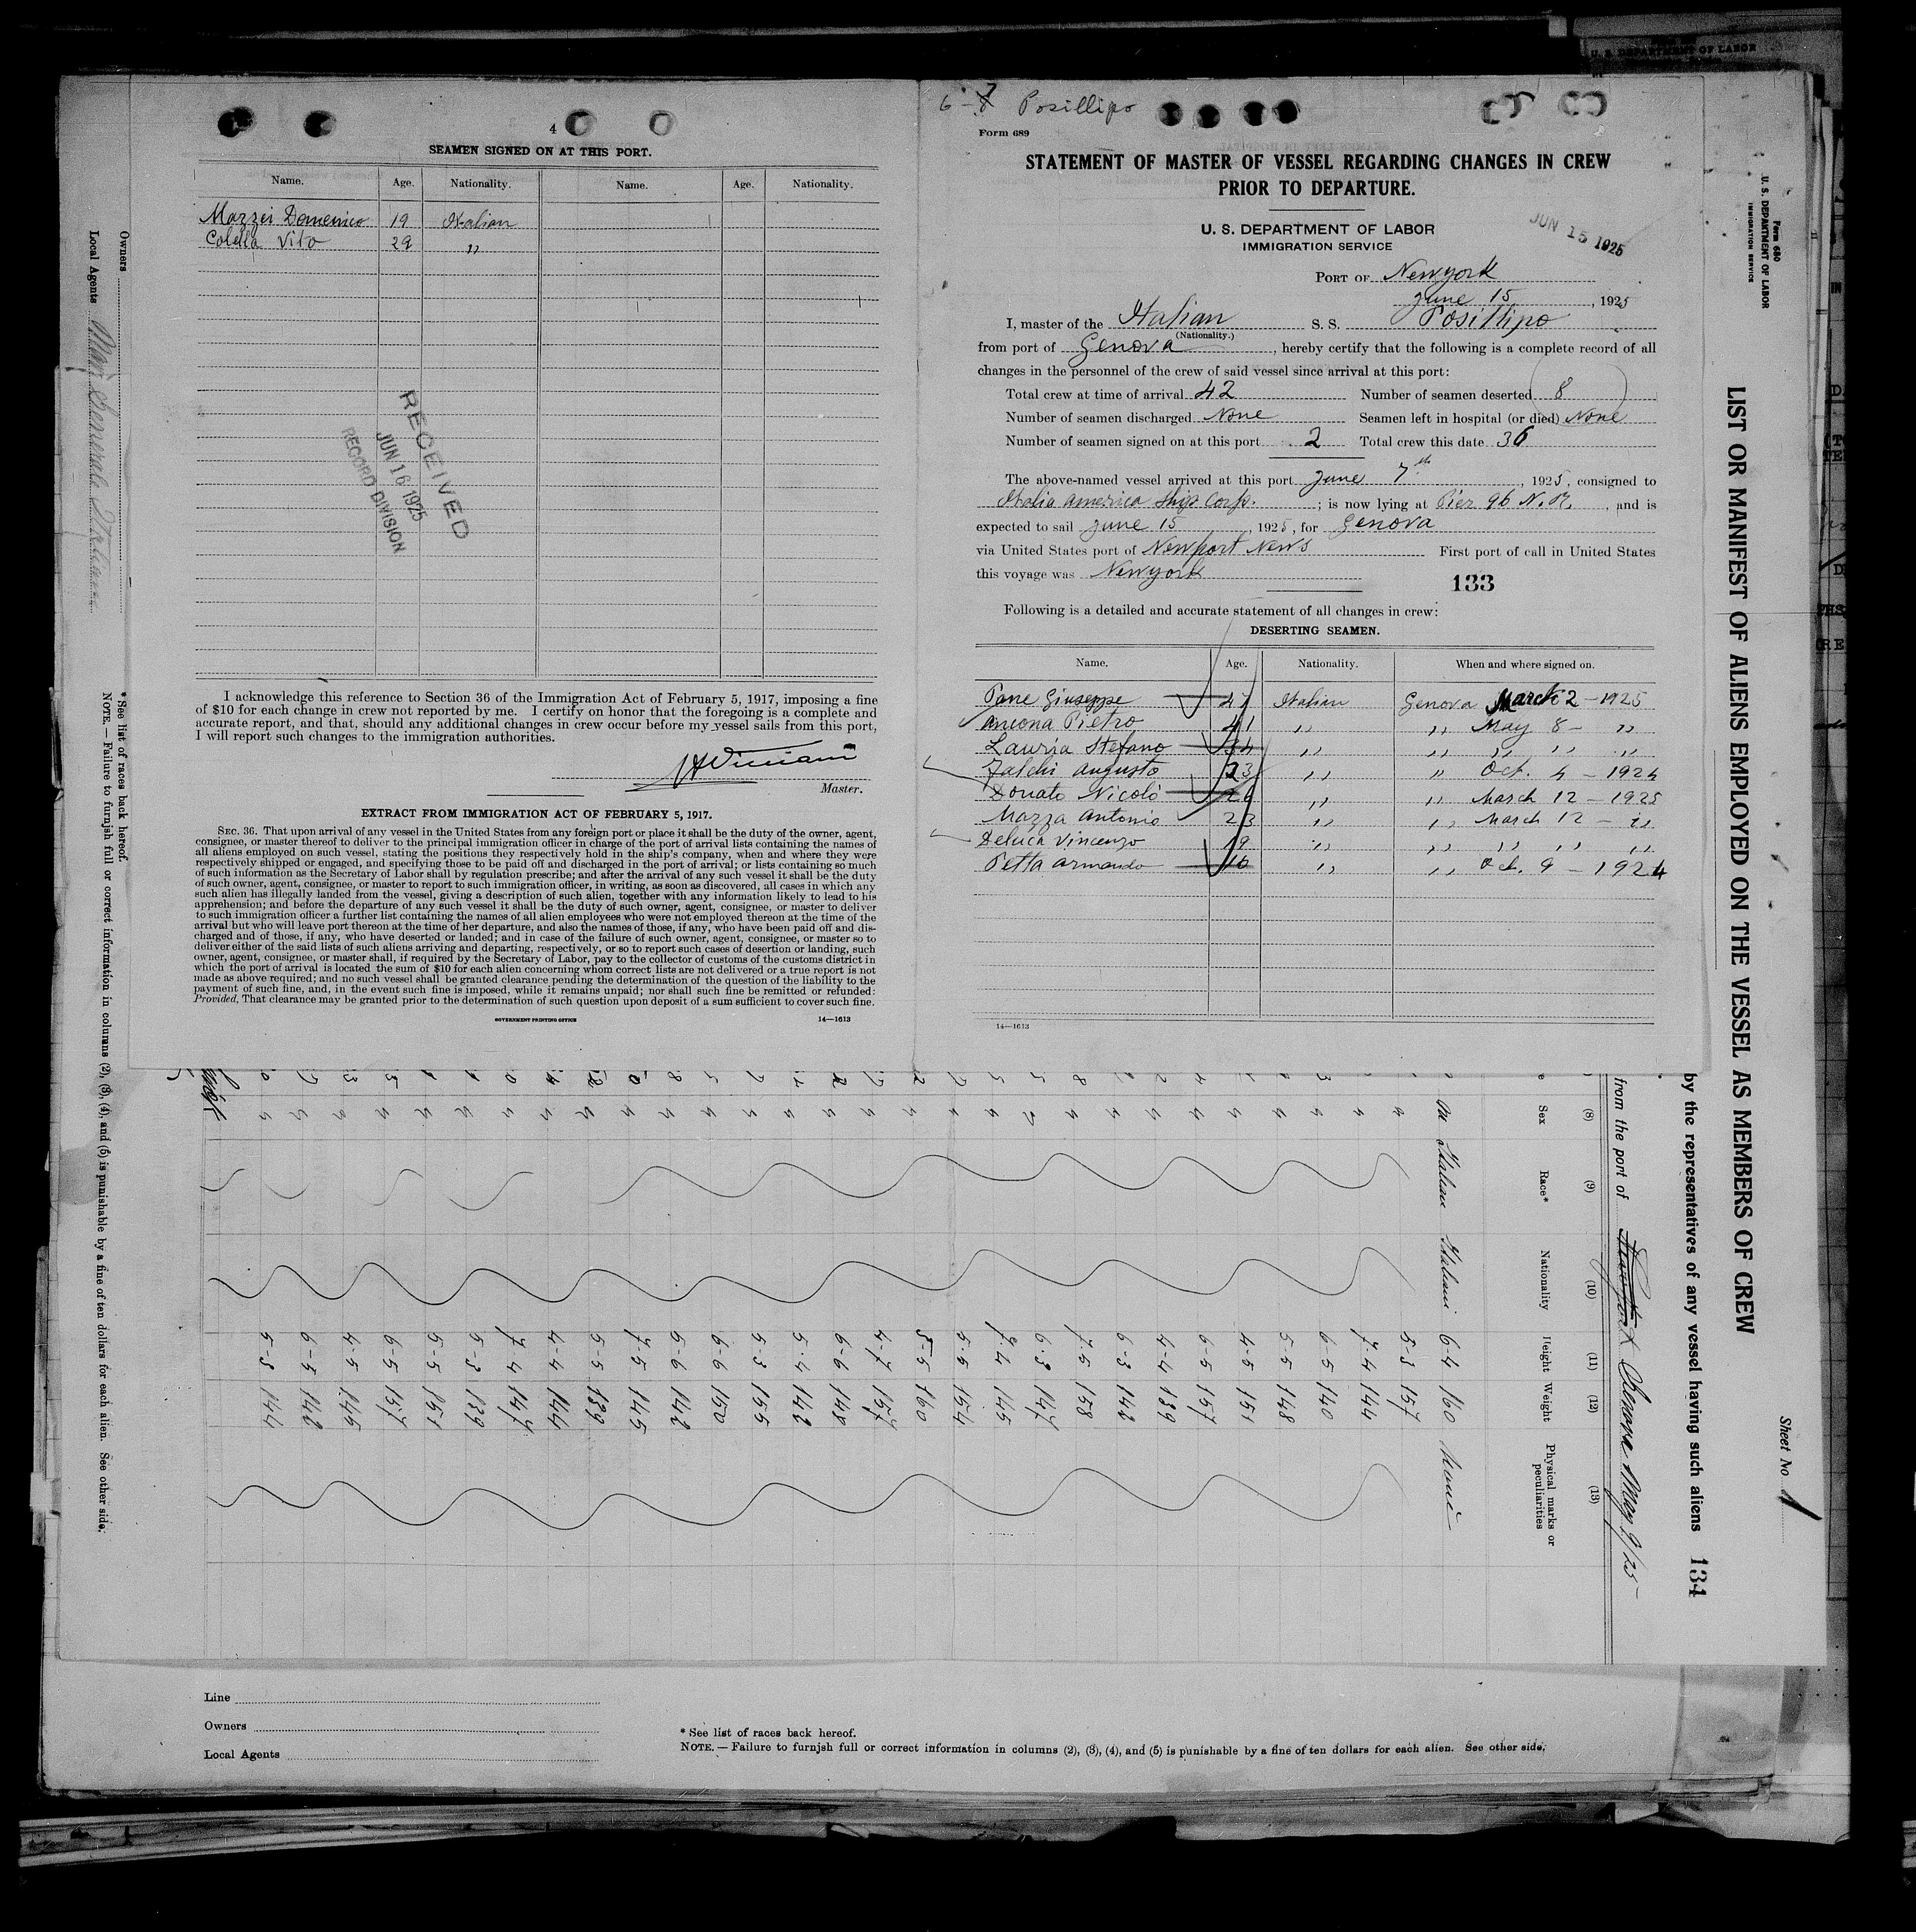 U. S. DEPARTMENT OF LABOR
4
SEAMEN SIGNED ON AT THIS PORT.
Name. Age. Nationality. Name. Age. Nationality.
Mazzei Domenico 19 Italian
Colella Vito 29 ,,
RECEIVED
JUN 16 1925
RECORD DIVISION
I acknowledge this reference to Section 36 of the Immigration Act of February 5, 1917, imposing a fine
of $10 for each change in crew not reported by me. I certify on honor that the foregoing is a complete and
accurate report, and that, should any additional changes in crew occur before my vessel sails from this port,
I will report such changes to the immigration authorities.
Master.
EXTRACT FROM IMMIGRATION ACT OF FEBRUARY 5, 1917.
SEC. 36. That upon arrival of any vessel in the United States from any foreign port or place it shall be the duty of the owner, agent,
consignee, or master thereof to deliver to the principal immigration officer in charge of the port of arrival lists containing the names of
all aliens employed on such vessel, stating the positions they respectively hold in the ship's company, when and where they were
respectively shipped or engaged, and specifying those to be paid off and discharged in the port of arrival; or lists containing so much
of such information as the Secretary of Labor shall by regulation prescribe; and after the arrival of any such vessel it shall be the duty
of such owner, agent, consignee, or master to report to such immigration officer, in writing, as soon as discovered, all cases in which any
such alien has illegally landed from the vessel, giving a description of such alien, together with any information likely to lead to his
apprehension; and before the departure of any such vessel it shall be the duty of such owner, agent, consignee, or master to deliver
to such immigration officer a further list containing the names of all alien employees who were not employed thereon at the time of the
arrival but who will leave port thereon at the time of her departure, and also the names of those, if any, who have been paid off and dis-
charged and of those, if any, who have deserted or landed; and in case of the failure of such owner, agent, consignee, or master so to
deliver either of the said lists of such aliens arriving and departing, respectively, or so to report such cases of desertion or landing, such
owner, agent, consignee, or master shall, if required by the Secretary of Labor, pay to the collector of customs of the customs district in
which the port of arrival is located the sum of $10 for each alien concerning whom correct lists are not delivered or a true report is not
made as above required; and no such vessel shall be granted clearance pending the determination of the question of the liability to the
payment of such fine, and, in the event such fine is imposed, while it remains unpaid; nor shall such fine be remitted or refunded:
Provided, That clearance may be granted prior to the determination of such question upon deposit of a sum sufficient to cover such fine.
GOVERNMENT PRINTING OFFICE 14—1613
6-7 Posillipo
Form 689
STATEMENT OF MASTER OF VESSEL REGARDING CHANGES IN CREW
PRIOR TO DEPARTURE.
U. S. DEPARTMENT OF LABOR
IMMIGRATION SERVICE
JUN 15 1925
PORT OF Newyork
June 15, 1925
I, master of the Italian S. S. Posillipo
(Nationality.)
from port of Genova, hereby certify that the following is a complete record of all
changes in the personnel of the crew of said vessel since arrival at this port:
Total crew at time of arrival 42 Number of seamen deserted 8
Number of seamen discharged None Seamen left in hospital (or died) None
Number of seamen signed on at this port 2 Total crew this date 36
The above-named vessel arrived at this port June 7th, 1925, consigned to
Italia America Ship Corp. ; is now lying at Pier 96 N. R., and is
expected to sail June 15, 1925, for Genova
via United States port of Newport News First port of call in United States
this voyage was Newyork
133
Following is a detailed and accurate statement of all changes in crew:
DESERTING SEAMEN.
Name. Age. Nationality. When and where signed on.
Pane Giuseppe 47 Italian Genova March 2 - 1925
Ancona Pietro 41 ,, ,, May 8 - ,,
Lauria Stefano 34 ,, ,, ,, ,, ,,
Falchi Augusto 23 ,, ,, Oct. 4 - 1924
Donato Nicolò 26 ,, ,, March 12 - 1925
Mazza Antonio 23 ,, ,, March 12 - ,,
Deluca Vincenzo 19 ,, ,, ,, ,, ,,
Petta Armando 16 ,, ,, Oct. 9 - 1924
14—1613
Form 680
U. S. DEPARTMENT OF LABOR
IMMIGRATION SERVICE
LIST OR MANIFEST OF ALIENS EMPLOYED ON THE VESSEL AS MEMBERS OF CREW
Sheet No. 1
by the representatives of any vessel having such aliens 134
from the port of Genova May 9/25
(8) (9) (10) (11) (12) (13)
Sex Race* Nationality Height Weight Physical marks or peculiarities
M Italian Italian 6-4 160 None
5-3 157
7-4 144
6-5 140
5-5 148
4-5 151
6-5 157
4-4 139
6-3 142
7-5 158
6-3 147
7-4 145
5-5 154
5-5 160
4-7 157
6-6 148
5-4 142
5-3 155
6-6 150
5-6 142
7-5 145
5-5 139
4-4 144
7-4 147
5-3 139
5-5 151
6-5 157
4-5 145
6-5 142
5-3 144
Owners
Local Agents
*See list of races back hereof.
NOTE.—Failure to furnish full or correct information in columns (2), (3), (4), and (5) is punishable by a fine of ten dollars for each alien. See other side.
Line
Owners
Local Agents
* See list of races back hereof.
NOTE.—Failure to furnish full or correct information in columns (2), (3), (4), and (5) is punishable by a fine of ten dollars for each alien. See other side.